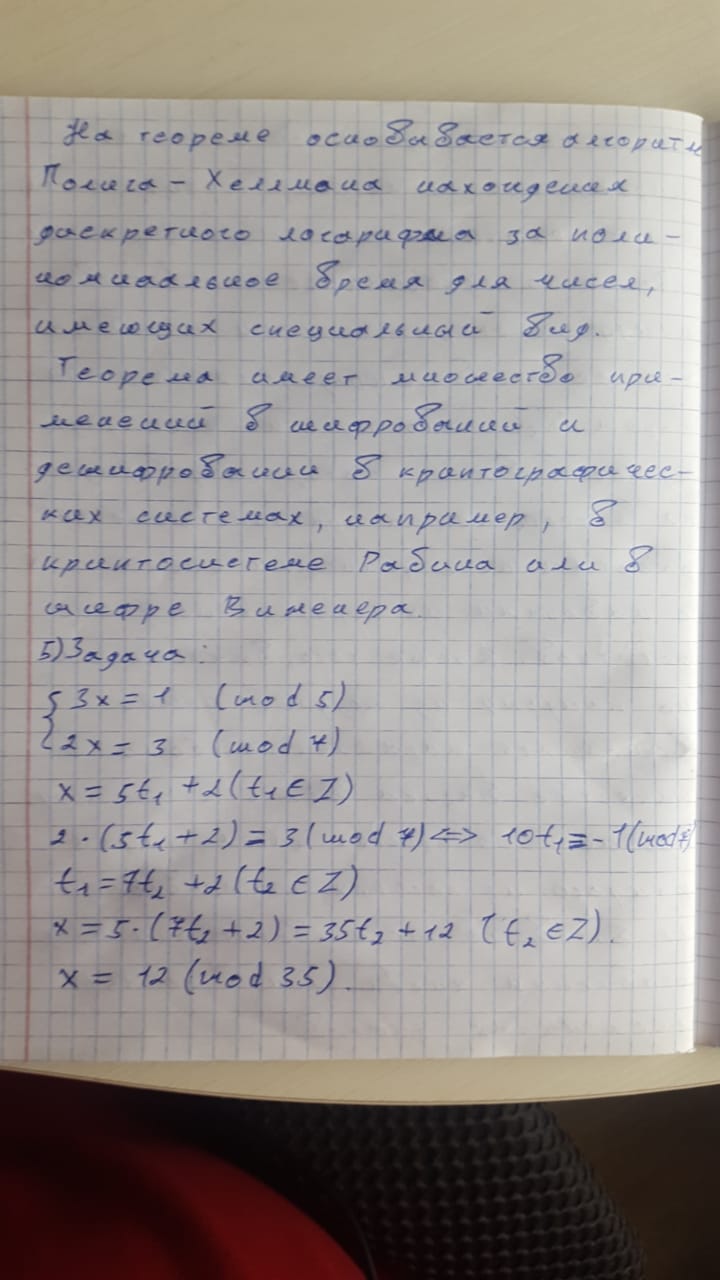 На теореме основывается алгоритм
Полига-Хеллмана нахождения
дискретного логарифма за поли-
номиальное время для чисел,
имеющих специальный вид.
Теорема имеет множество при-
менений в шифрований и
дешифровании в криптографичес-
ких системах, например, в
криптосистеме Рабина или в
шифре Виженера.
5) Задача:
3x = 1 (mod 5)
2x = 3 (mod 7)
x = 5t₁ + 2 (t₁ ∈ Z)
2·(5t₁ + 2) = 3 (mod 7) <=> 10t₁ ≡ -1 (mod 7)
t₁ = 7t₂ + 2 (t₂ ∈ Z)
x = 5·(7t₂ + 2) = 35t₂ + 12 (t₂ ∈ Z).
x = 12 (mod 35).